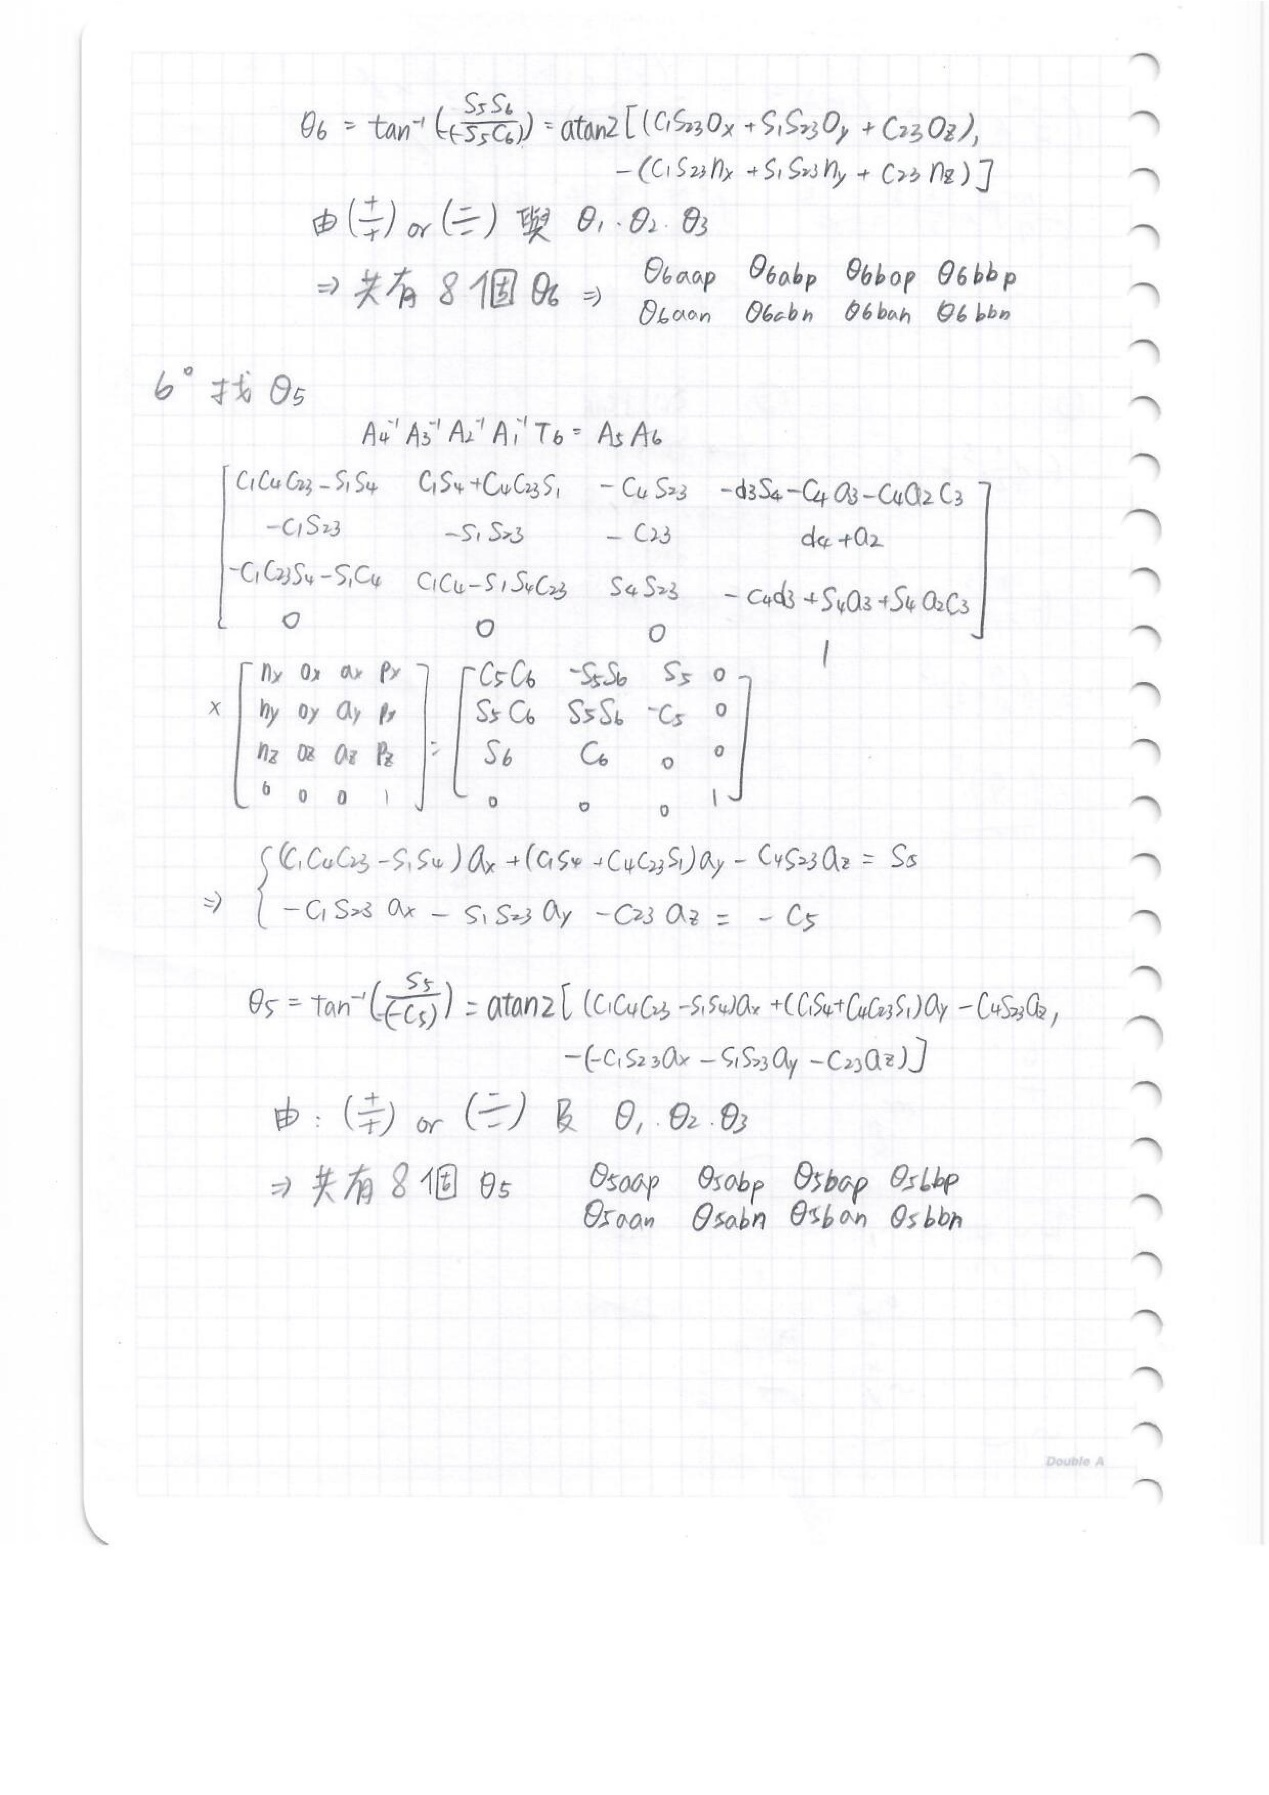 θ6 = tan⁻¹(S5S6/(-S5C6)) = atan2[(C1S23Ox + S1S23Oy + C23Oz),
-(C1S23nx + S1S23ny + C23nz)]
由(+/+) or (-/-) 與 θ1.θ2.θ3
⇒ 共有8個θ6 ⇒ θ6aap θ6abp θ6bap θ6bbp
θ6aan θ6abn θ6ban θ6bbn
6° 找 θ5
A4⁻¹A3⁻¹A2⁻¹A1⁻¹T6 = A5A6
C1C4C23-S1S4 C1S4+C4C23S1 -C4S23 -d3S4-C4a3-C4a2C3
-C1S23 -S1S23 -C23 d4+a2
-C1C23S4-S1C4 C1C4-S1S4C23 S4S23 -C4d3+S4a3+S4a2C3
0 0 0 1
× [nx ox ax px = [C5C6 -S5S6 S5 0
ny oy ay py S5C6 S5S6 -C5 0
nz oz az pz S6 C6 0 0
0 0 0 1] 0 0 0 1]
{(C1C4C23-S1S4)ax+(C1S4+C4C23S1)ay-C4S23az = S5
⇒ -C1S23ax - S1S23ay - C23az = -C5
θ5 = tan⁻¹(S5/(-C5)) = atan2[(C1C4C23-S1S4)ax+(C1S4+C4C23S1)ay-C4S23az,
-(-C1S23ax-S1S23ay-C23az)]
由:(+/+) or (-/-) 及 θ1.θ2.θ3
⇒ 共有8個 θ5 θ5aap θ5abp θ5bap θ5bbp
θ5aan θ5abn θ5ban θ5bbn
Double A